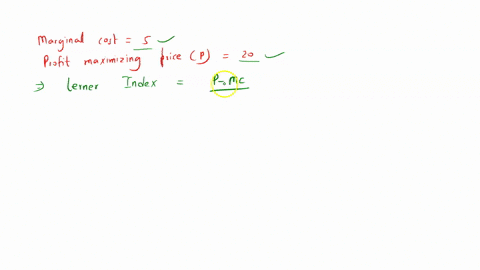 Marginal cost = 5 ✓
Profit maximizing price (P) = 20 ✓
⇒ Lerner Index = P-MC